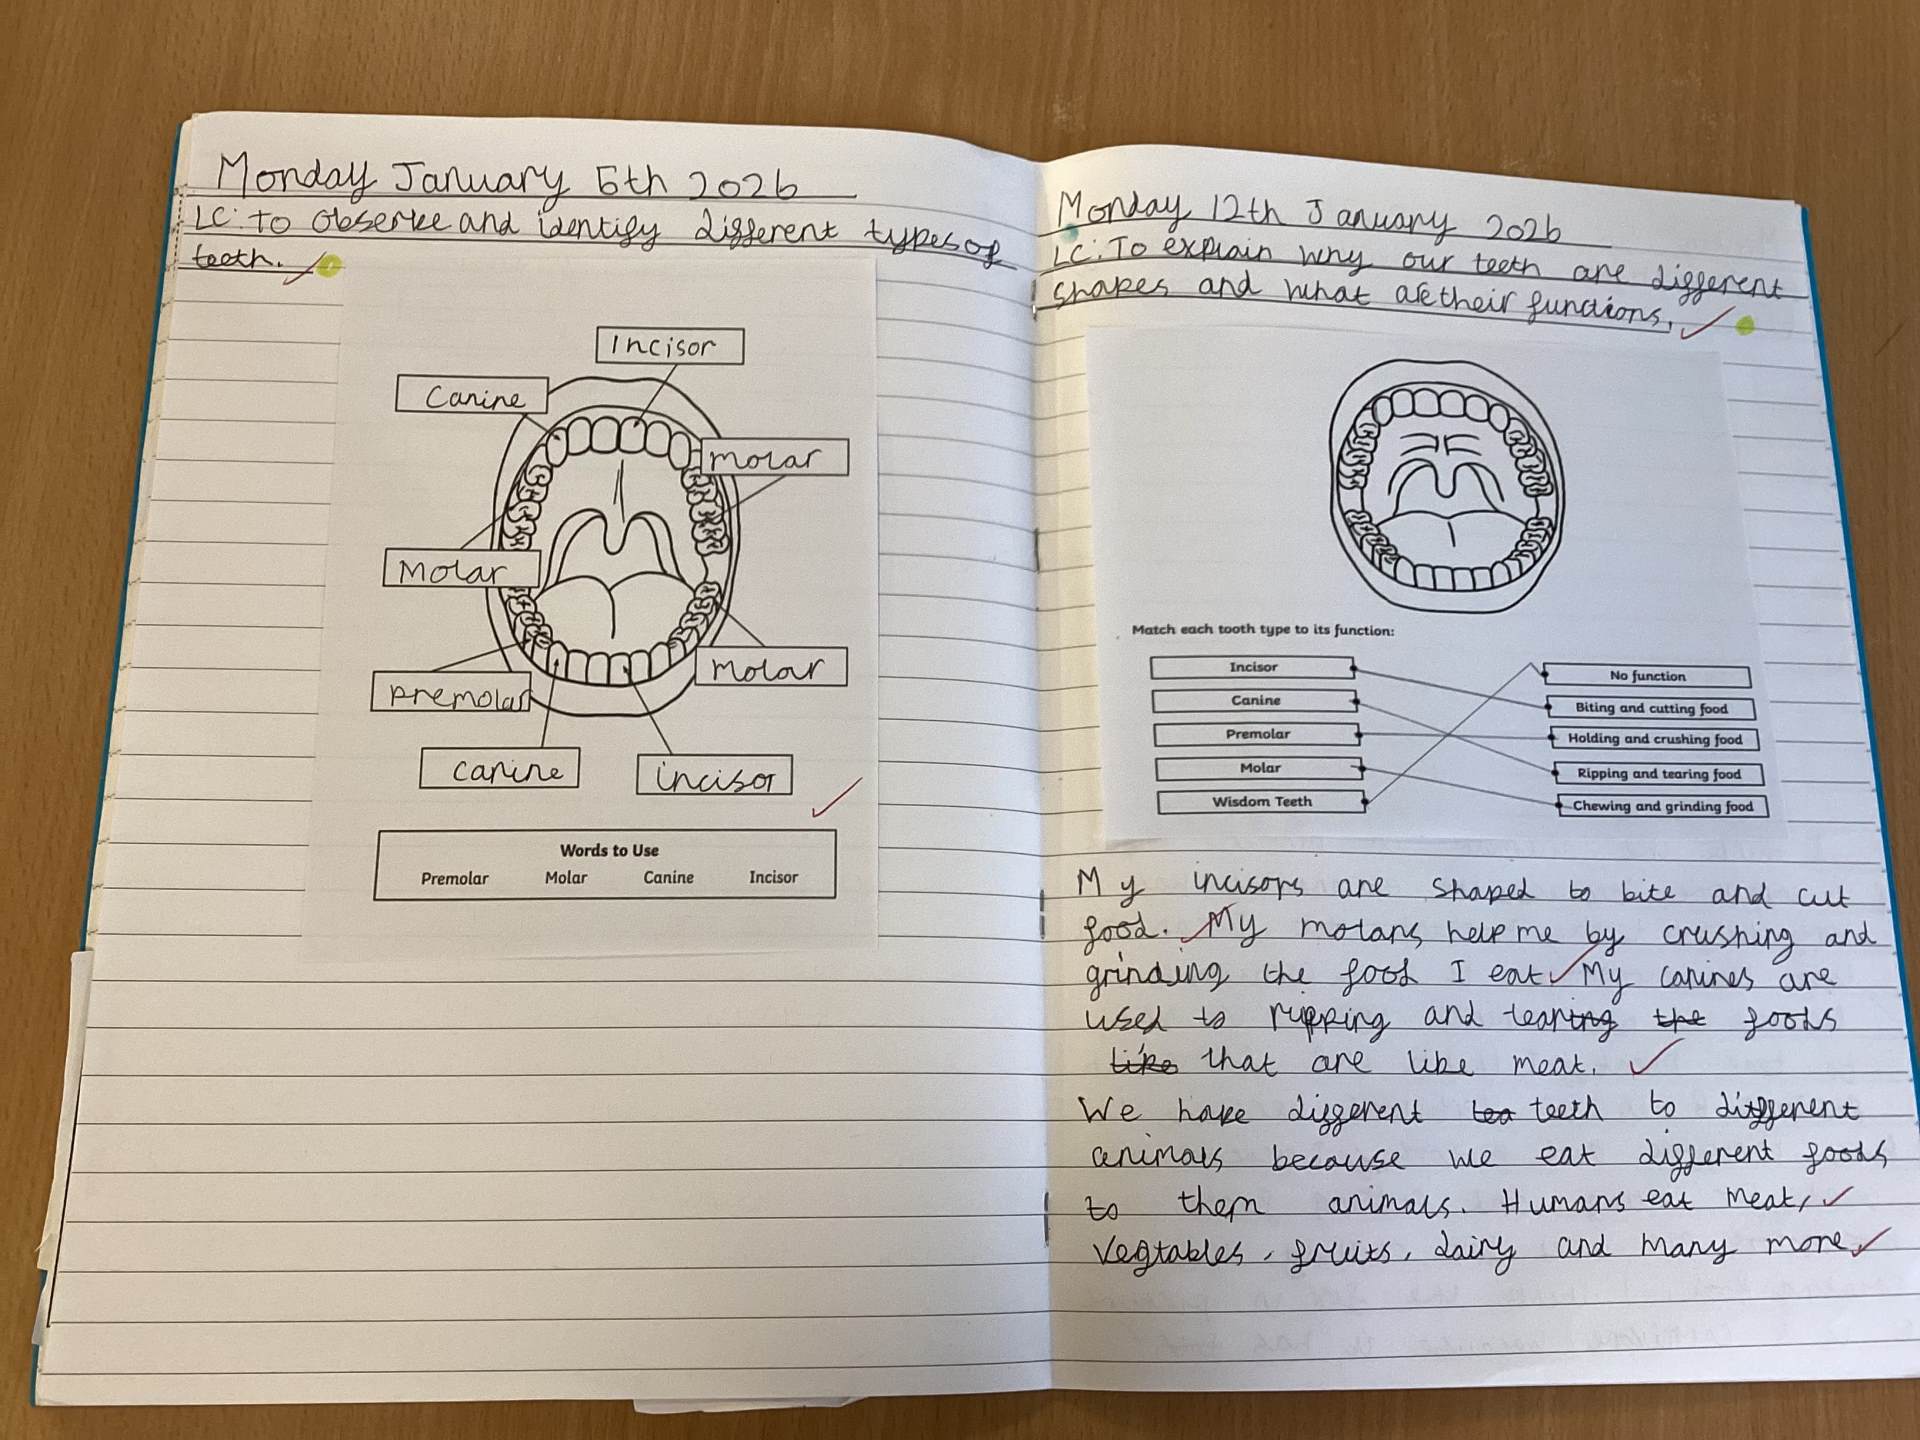 Monday January 5th 2026
LC: To observe and identify different types of
teeth.
Incisor
Canine
molar
Molar
molar
premolar
canine
incisor
Words to Use
Premolar Molar Canine Incisor
Monday 12th January 2026
LC: To explain why our teeth are different
shapes and what are their functions.
Match each tooth type to its function:
Incisor No function
Canine Biting and cutting food
Premolar Holding and crushing food
Molar Ripping and tearing food
Wisdom Teeth Chewing and grinding food
My incisors are shaped to bite and cut
food. My molars help me by crushing and
grinding the food I eat. My canines are
used to ripping and tearing the foods
like that are like meat.
We have different tea teeth to different
animals because we eat different foods
to them animals. Humans eat meat,
vegtables, fruits, dairy and many more